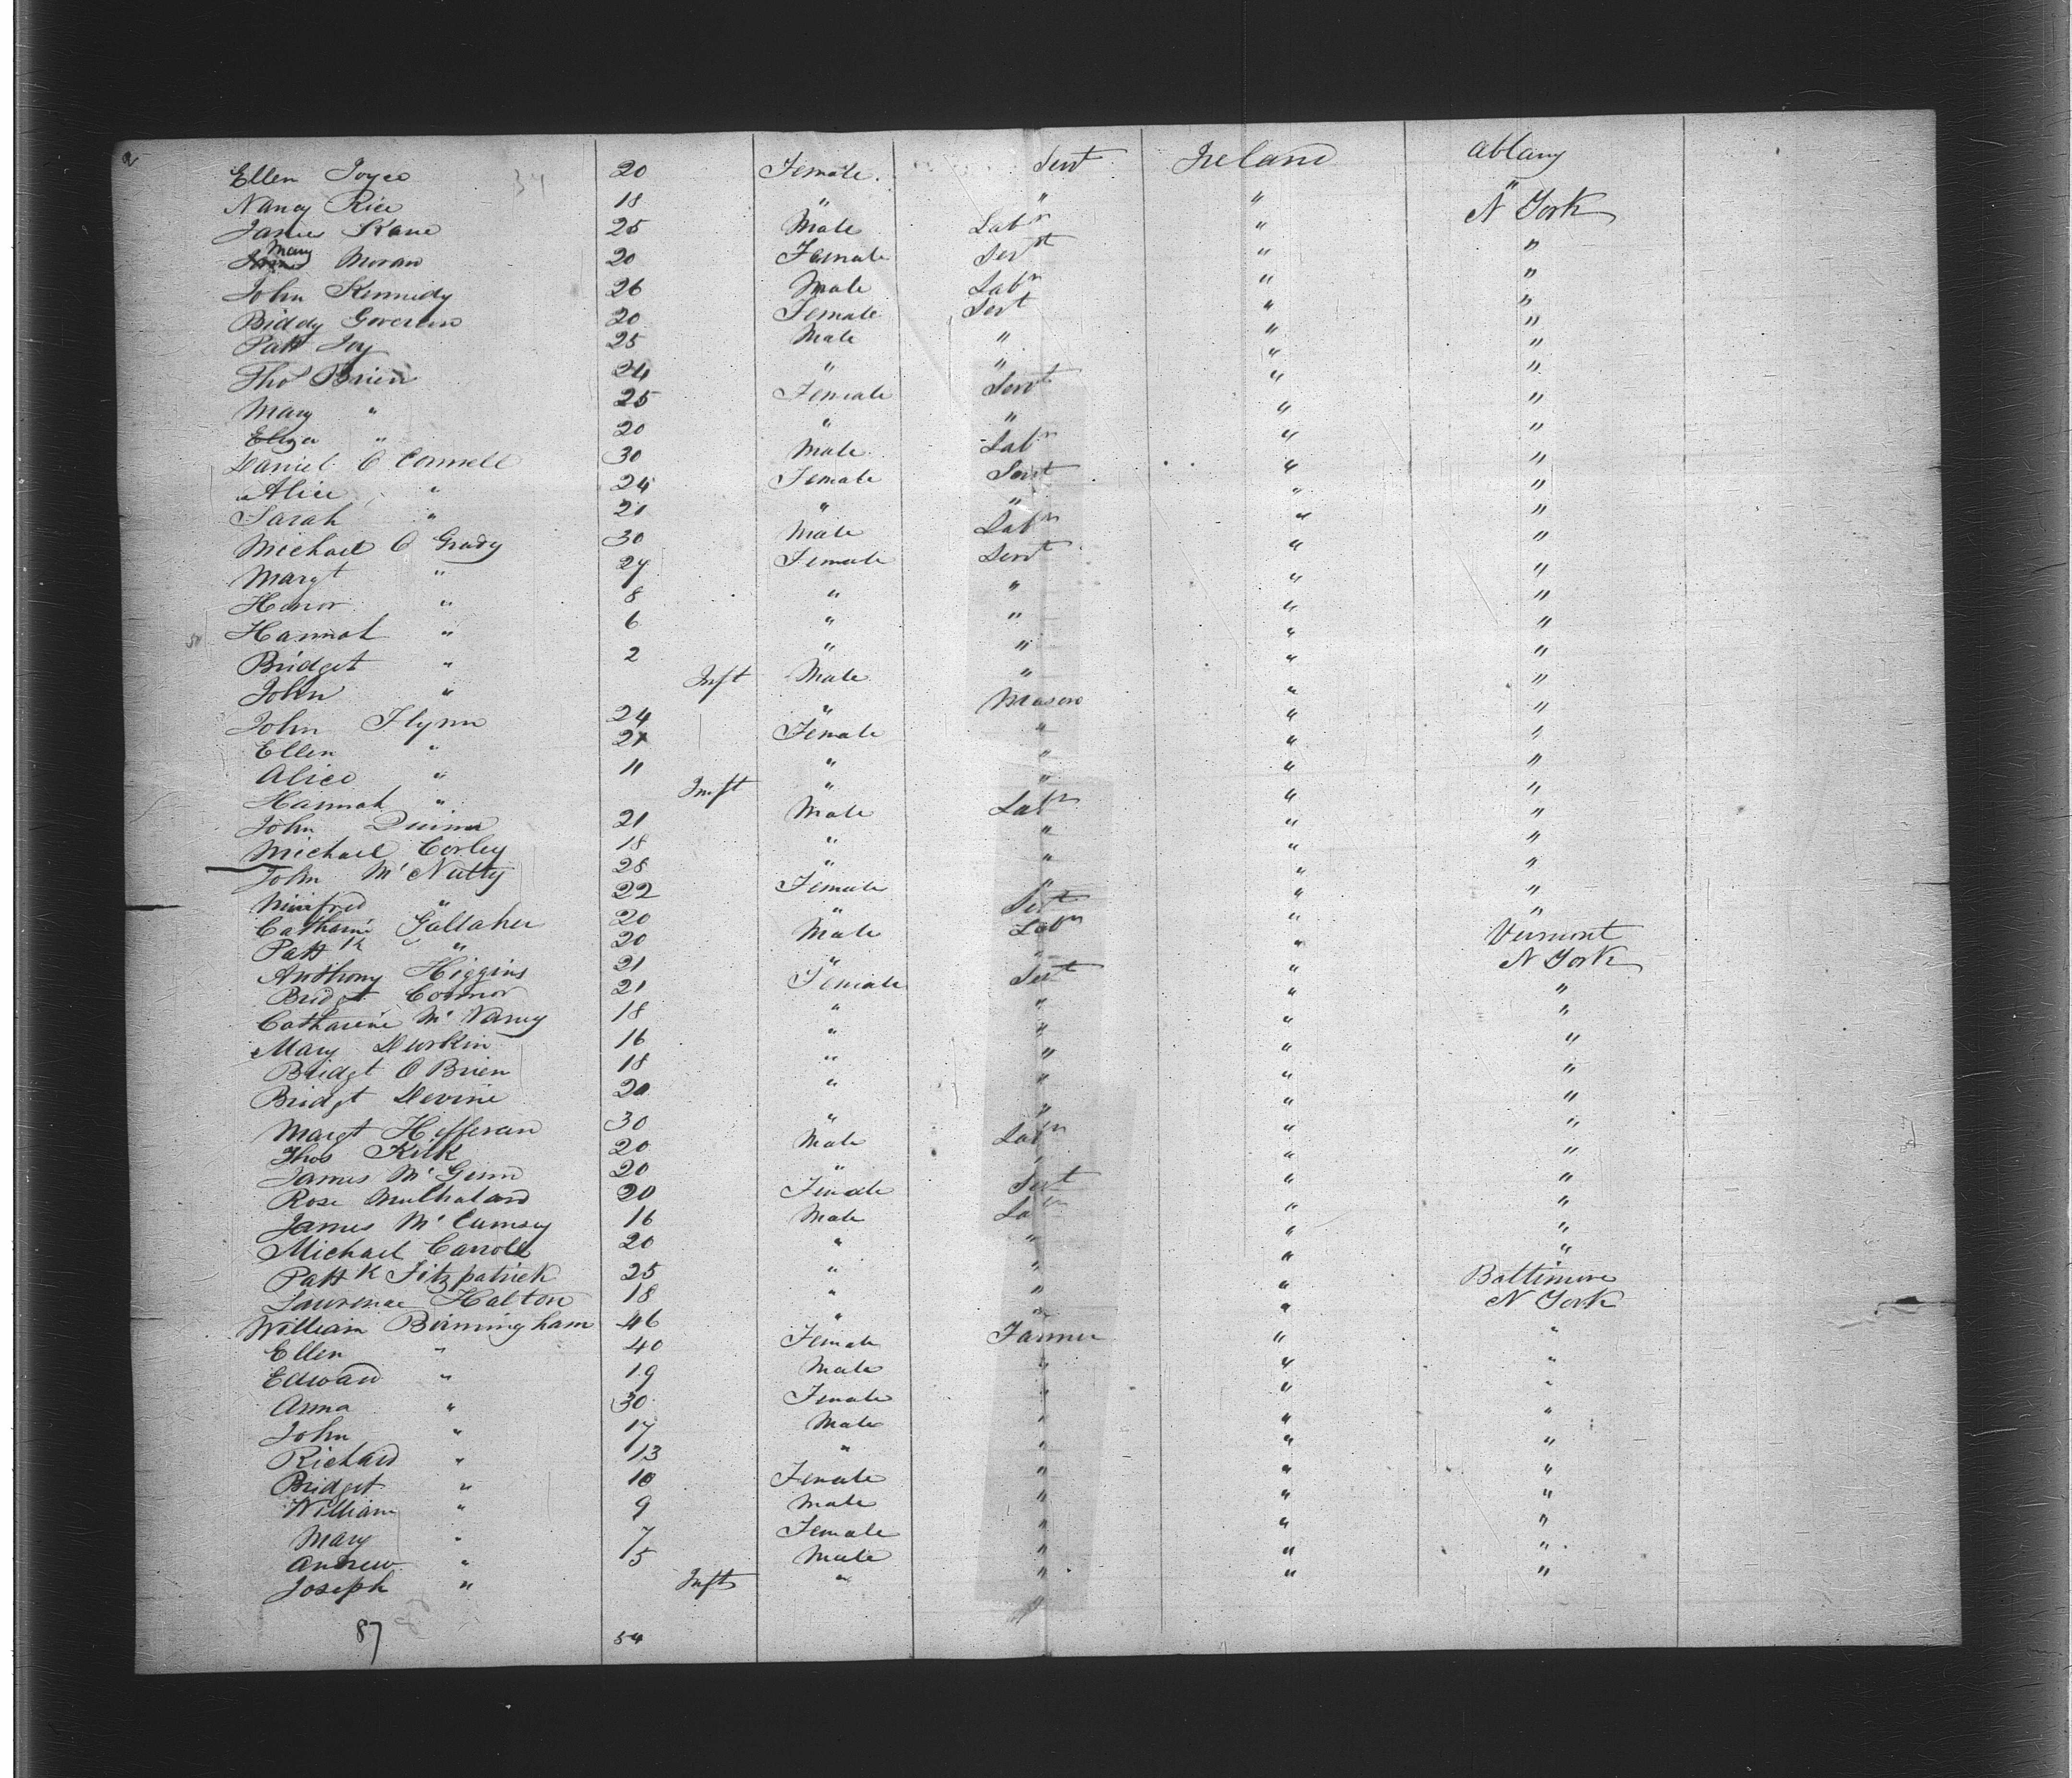 Ellen Joyce 20 Female Servt Ireland Albany
Nancy Rice 18 " " " "
James Kane 25 Male Labr " N York
Mary Moran 20 Female Servt " "
John Kennedy 26 Male Labr " "
Biddy 20 Female Servt " "
Patt Joy 25 Male " " "
Thos Brien 24 " " " "
Mary " 25 Female Servt " "
Eliza " 20 " " " "
Daniel O Connell 30 Male Labr " "
Alice " 24 Female Servt " "
Sarah " 21 " " " "
Michael O Grady 30 Male Labr " "
Margt " 27 Female Servt " "
Honor " 8 " " " "
Hannah " 6 " " " "
Bridget " 2 " " " "
John " Inft Male " " "
John Flynn 24 " Mason " "
Ellen " 21 Female " " "
Alice " 11 " " " "
Hannah " Inft " " " "
John Quinn 21 Male Labr " "
Michael Corley 18 " " " "
John McNulty 28 " " " "
Winifred " 22 Female " " "
Catharine Gallaher 20 " Servt " "
Pattk " 20 Male Labr " Vermont
Anthony Higgins 21 " " " N York
Bridgt Connor 21 Female Servt " "
Catharine Mc 18 " " " "
Mary Durkin 16 " " " "
Bridgt O Brien 18 " " " "
Bridgt Devine 20 " " " "
Margt Hefferan 30 " " " "
Thos Kirk 20 Male Labr " "
James McGinn 20 " " " "
Rose Mulholand 20 Female Servt " "
James McCumsey 16 Male Labr " "
Michael Carroll 20 " " " "
Pattk Fitzpatrick 25 " " " Baltimore
Lawrence Halton 18 " " " N York
William Birmingham 46 " Farmer " "
Ellen " 40 Female " " "
Edward " 19 Male " " "
Anna " 30 Female " " "
John " 17 Male " " "
Richard " 13 " " " "
Bridget " 10 Female " " "
William " 9 Male " " "
Mary " 7 Female " " "
Andrew " 5 Male " " "
Joseph " Inft " " " "
87 54